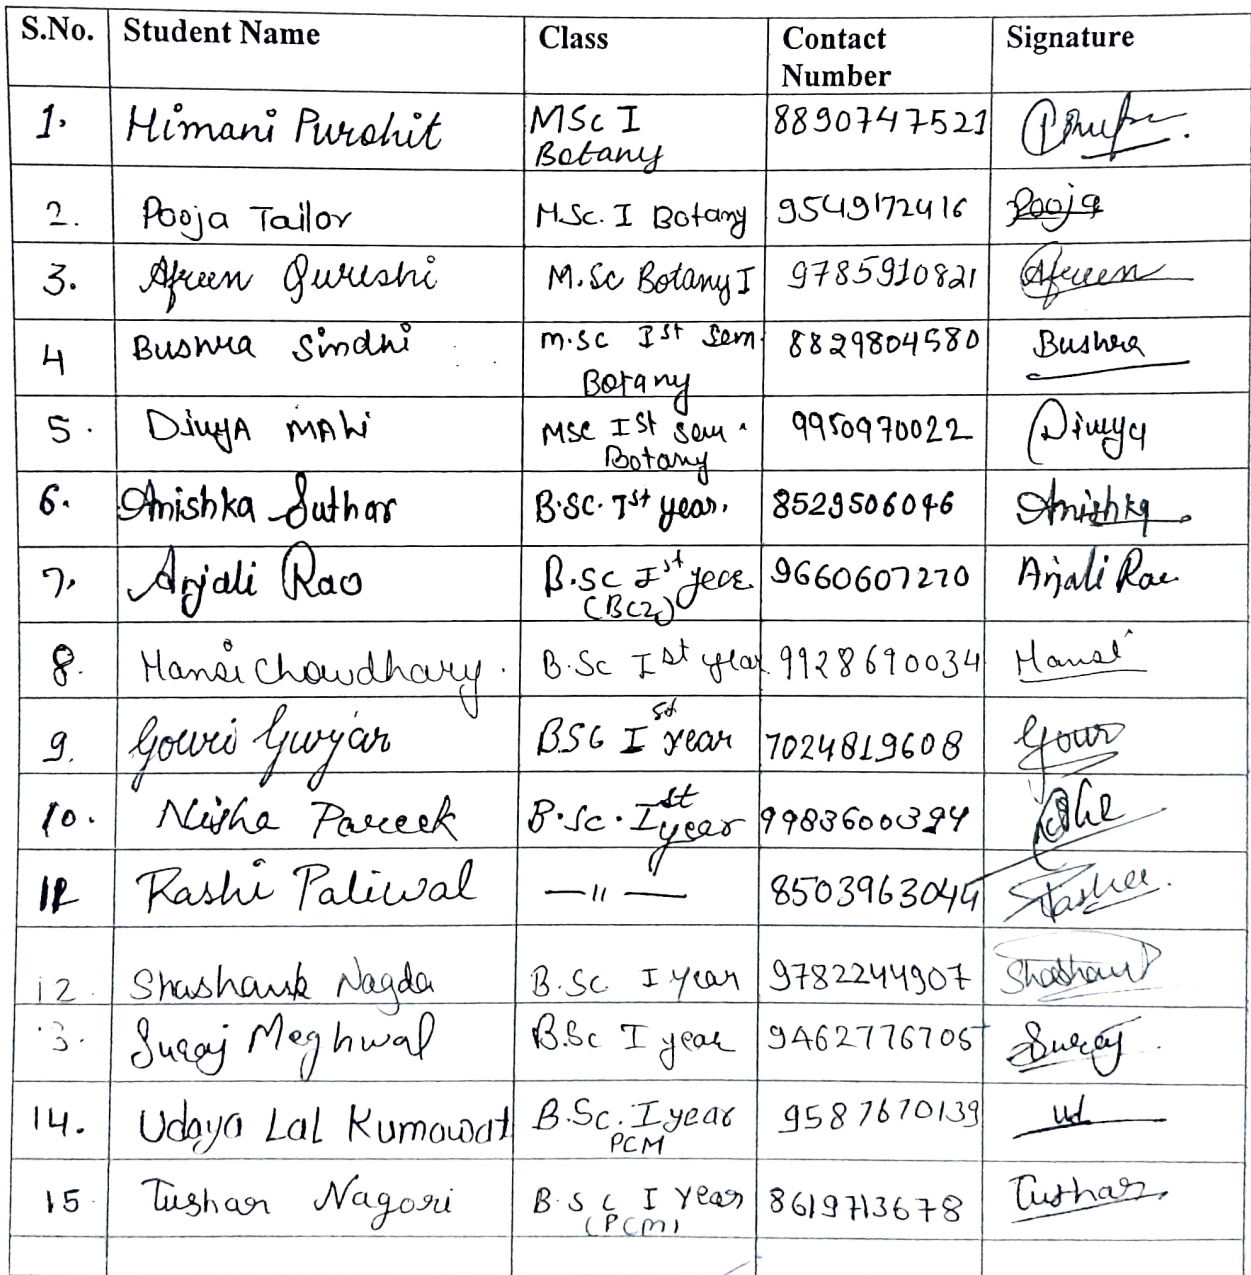 S.No. Student Name Class Contact Number Signature
1. Himani Purohit MSc I Botany 8890747521
2. Pooja Tailor M.Sc. I Botany 9549172416 Pooja
3. Afreen Qureshi M.Sc Botany I 9785910821 Afreen
4 Bushra Sindhi M.SC Ist Sem. Botany 8829804580 Bushra
5. DivyA MAli MSC ISt Sem. Botany 9950970022 Divya
6. Anishka Suthar B.SC. Ist year. 8529506046 Anishka
7. Anjali Rao B.SC Ist year (BCZ) 9660607270 Anjali Rao
8. Mansi Chowdhary. B.Sc Ist year 9928690034 Mansi
9. Gouri Gurjar BSC I st year 7024819608 Gouri
10. Nisha Pareek B.Sc. Ist year 9983600394
11 Rashi Paliwal —"— 8503963044 Rashi
12. Shashank Nagda B.SC I year 9782244907 Shashank
13. Suraj Meghwal B.Sc I year 9462776705 Suraj
14. Udaya Lal Kumawat B.Sc. I year PCM 9587670139 Ud
15 Tushar Nagori B.S C I Year (PCM) 8619713678 Tushar